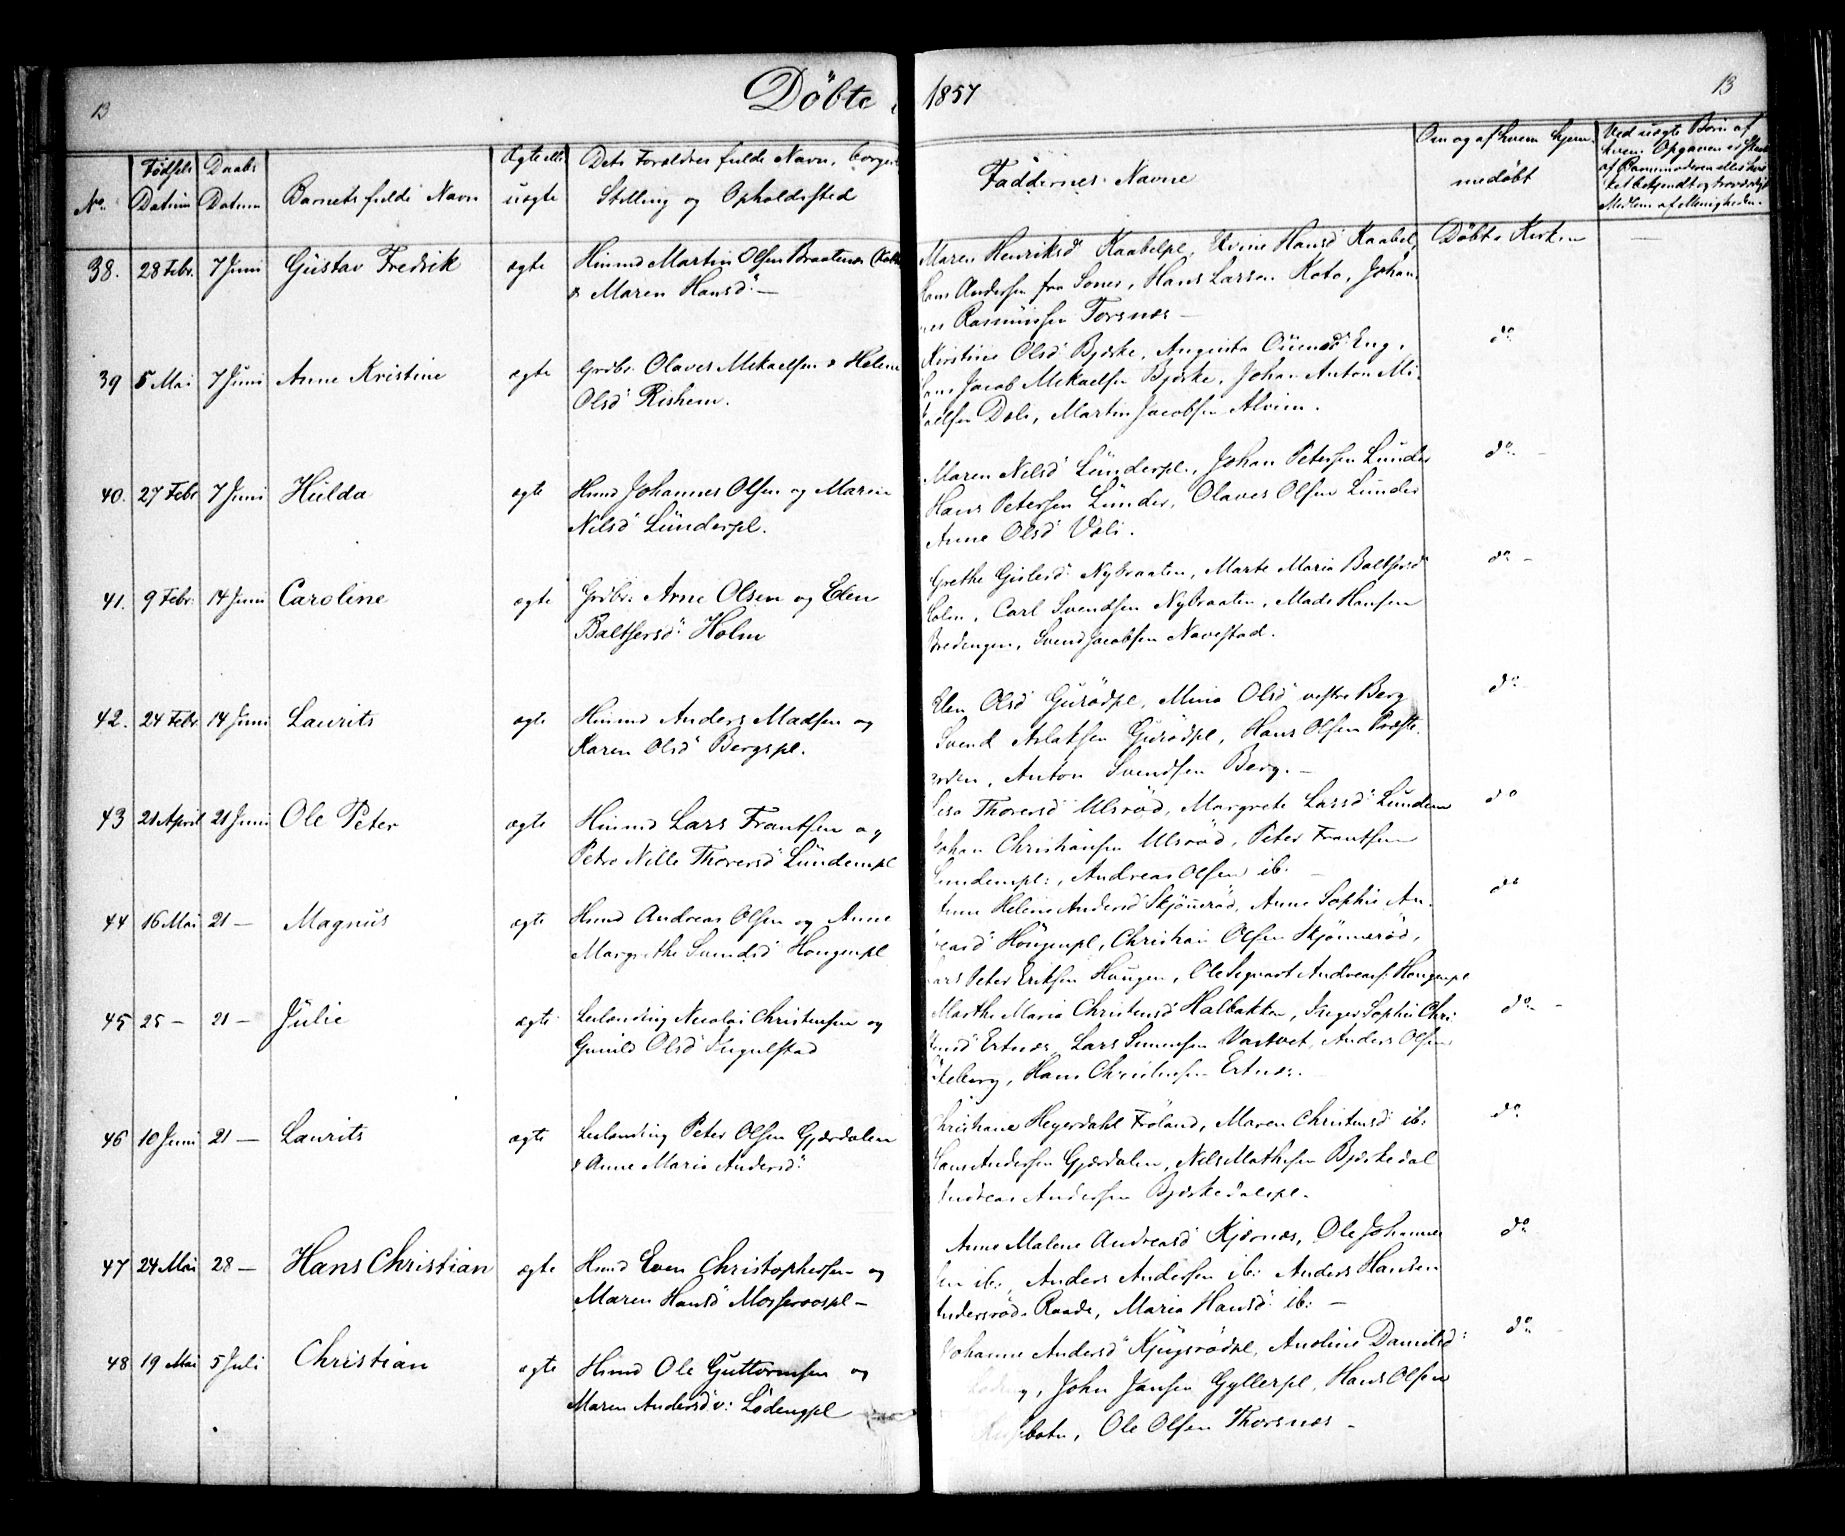 13
Döbte
1857
13
No.
Födsels Datum
Daabs Datum
Barnets fulde Navn
Ægte ell. uægte
Dets Forældres fulde Navn, borger
Stilling og Opholdssted
Faddernes Navne
Om og af hvem hjem-
medøbt
Ved uægte Børn af
38. 28 Febr. 7 Juni Gustav Fredrik ægte Huusmd Martin Olsen Braatenæs
& Maren Hansd. —
Maren Henriksd Kaabelpl, Hansd Kaabel,
Hans Andersen fra Soner, Hans Larsen Koto, Johan-
nes Rasmussen Torsnæs —
Döbt i Kirken —
39 5 Mai 7 Juni Anne Kristine ægte Grdbr. Olaves Mekaelsen & Helene
Olsd Rishem.
Kirstine Olsd Bjerke, Augusta Eng,
Hans Jacob Mekaelsen Bjerke, Johan Anton Mi-
kaelsen Dele, Martin Jacobsen Alvim.
do
40. 27 Febr 7 Juni Hulda ægte Huusmd Johannes Olsen og Maren
Nilsd Lunderpl.
Maren Nilsd Lunderpl., Johan Petersen Lunder
Hans Petersen Lunder, Olaves Olsen Lunder
Anne Olsd Væli.
do —
41. 9 Febr. 14 Juni Caroline ægte Grdbr: Arne Olsen og Elen
Baltsersd: Holm
Grethe Nybraaten, Marte Maria Baltsersd
Holm, Carl Svendsen Nybraaten, Mads Hansen
Bredengen, Svend Jacobsen Navestad.
do —
42. 24 Febr 14 Juni Laurits ægte Huusmd Anders Madsen og
Karen Olsd Bergspl.
Elen Olsd Gurödpl, Mina Olsd vestre Berg
Svend Aslaksen Gurödpl, Hans Olsen Præste-
, Anton Svendsen Berg. —
do
43 21 April 21 Juni Ole Peter ægte Huusmd Lars Frantsen og
Petro Nille Thorersd Lundempl
Thorersd Ulsröd, Margrete Larsd Lundem
Johan Christiansen Ulsröd, Peter Frantsen
Lundempl:, Andreas Olsen ib. —
do
44 16 Mai 21 — Magnus ægte Huusmd Andreas Olsen og Anne
Margrethe Svendsd Hougenpl
Anne Helene Andersd Skjönneröd, Anne Sophie An-
dreasd Hougenpl, Christian Olsen Skjönneröd,
Lars Peter Eriksen Haugen, Ole Segvart Andreass. Hougenpl
do
45 25 — 21 — Julie ægte Leilænding Nicolai Christensen og
Gunild Olsd Ingulstad
Marthe Maria Christensd Halbakken, Inger Sophie Chri-
stensd Ertnæs, Lars Simensen Vastvet, Anders Olsen
, Hans Christensen Ertnæs.
do —
46 10 Juni 21 — Laurits ægte Leilænding Peter Olsen Gjærdalen
& Anne Maria Andersd:
Christiane Heyerdahl Fröland, Maren Christensd ib:
Hans Andersen Gjærdalen, Nils Mathisen Bjærkedal
Andreas Andersen Bjærkedalspl.
do
47 24 Mai 28 — Hans Christian ægte Huusmd Even Christophersen og
Maren Hansd Mosserospl —
Anne Malene Andreasd Kjærnæs, Ole Johannes-
sen ib:, Anders Andersen ib: Anders Hansen
Andersröd i Raade, Maria Hansd: ib: —
do
48 19 Mai 5 Juli Christian ægte Huusmd Ole Guttormsen og
Maren Andersd v: Lödengpl
Johanne Andersd Kjugsrödpl, Anoline Danielsd:
, John Jansen Gyllerpl, Hans Olsen
, Ole Olsen Thorsnæs —
do —